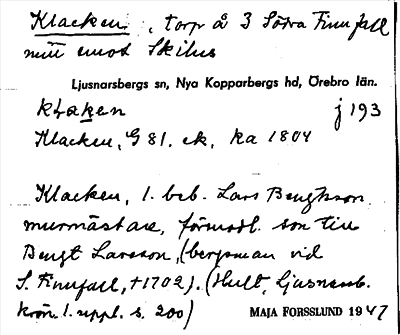 Klacken, torp å 3 Södra Finnfall
mitt emot Skihus
Ljusnarsbergs sn, Nya Kopparbergs hd, Örebro län.
kłaken j 193
Klacken, G 81. ek, ka 1804
Klacken, 1. beb. Lars Bengtsson
murmästare, förmodl. son till
Bengt Larsson, (bergsman vid
S. Finnfall, †1702). (Hult, Ljusnarsb.
krön. 1. uppl. s. 200)
MAJA FORSSLUND 1947